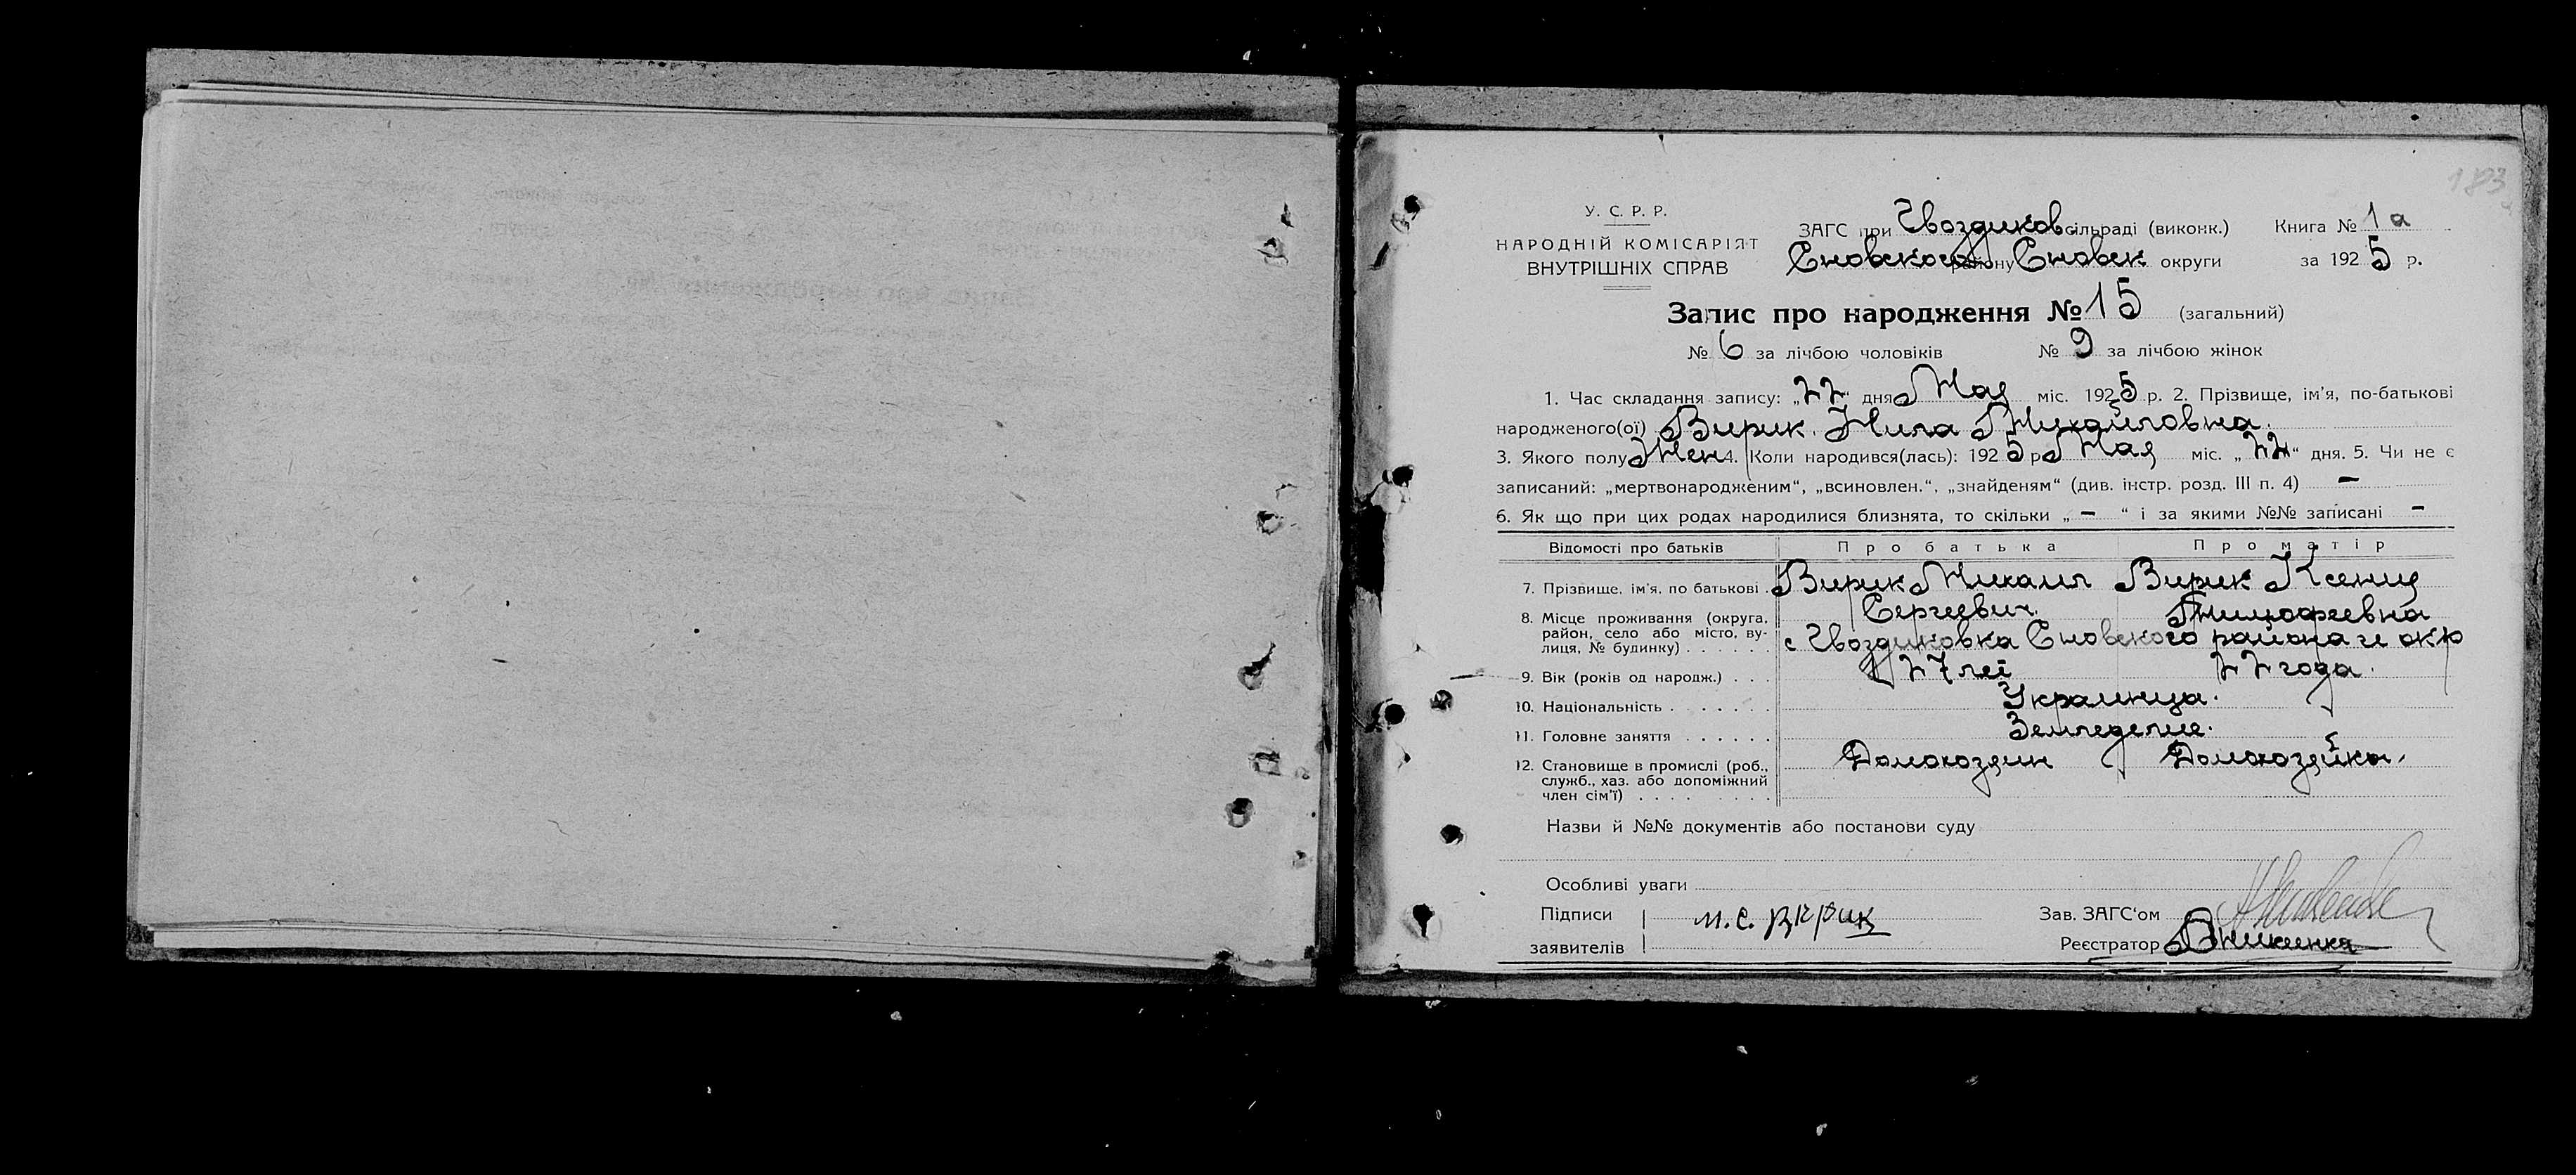 183
У. С. Р. Р.
НАРОДНІЙ КОМІСАРІЯТ
ВНУТРІШНІХ СПРАВ
ЗАГС при Гвоздиков. сільраді (виконк.) Книга № 1а
Сновского району Сновск округи за 1925 р.
Запис про народження № 15 (загальний)
№ 6 за лічбою чоловіків № 9 за лічбою жінок
1. Час складання запису: „22“ дня Мая міс. 1925 р. 2. Прізвище, ім'я, по-батькові
народженого(ої) Вирик Нила Михайловна.
3. Якого полу Жен 4. Коли народився(лась): 1925 р. Мая міс. „22“ дня. 5. Чи не є
записаний: „мертвонародженим“, „всиновлен.“, „знайденям“ (див. інстр. розд. III п. 4) –
6. Як що при цих родах народилися близнята, то скільки „ – “ і за якими №№ записані –
Відомості про батьків Про батька Про матір
7. Прізвище, ім'я, по батькові . Вирик Михаил Вирик Ксения
Сергеевич. Тимофеевна
8. Місце проживання (округа, район, село або місто, вулиця, № будинку) . . . . . . с Гвоздиковка Сновского района и окр
9. Вік (років од народж.) . . . 27 лет 22 года.
10. Національність . . . . . . . Украинца.
11. Головне заняття . . . . . . Земледелие.
12. Становище в промислі (роб., служб., хаз. або допоміжний член сім'ї) . . . . . . . . Домохозяин Домохозяйка.
Назви й №№ документів або постанови суду
Особливі уваги
Підписи М. С. Вирик Зав. ЗАГС'ом
заявителів Реєстратор